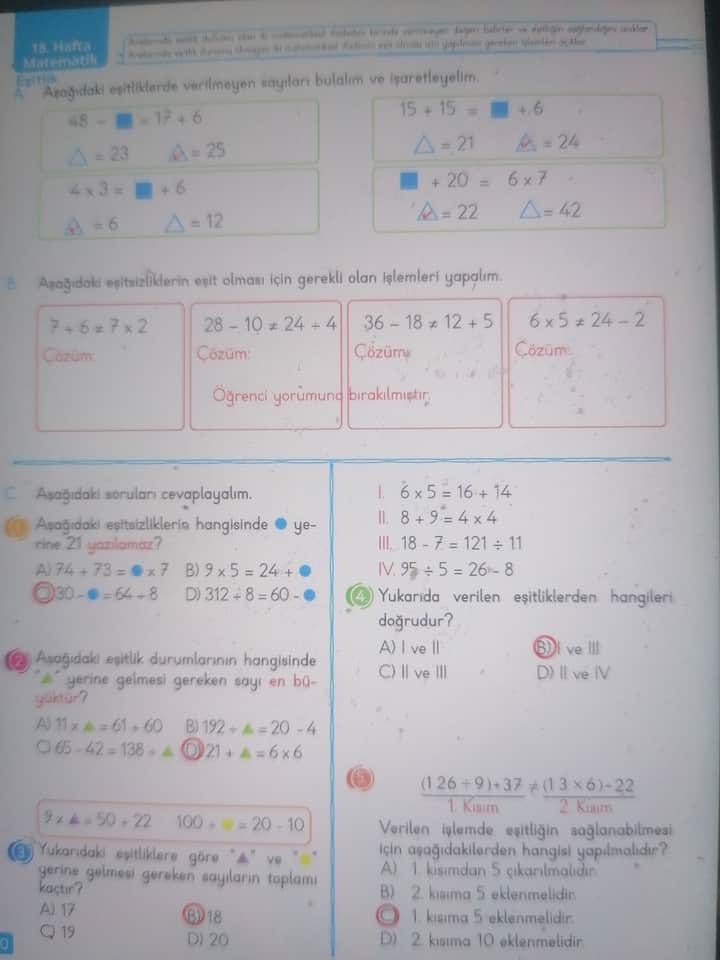 18. Hafta
Matematik
Eşitlik
A. Aşağıdaki eşitliklerde verilmeyen sayıları bulalım ve işaretleyelim.
48 - ■ = 17 + 6
△ = 23 △ = 25
15 + 15 = ■ + 6
△ = 21 △ = 24
4 x 3 = ■ + 6
△ = 6 △ = 12
■ + 20 = 6 x 7
△ = 22 △ = 42
B. Aşağıdaki eşitsizliklerin eşit olması için gerekli olan işlemleri yapalım.
7 + 6 ≠ 7 x 2
Çözüm:
28 - 10 ≠ 24 ÷ 4
Çözüm:
36 - 18 ≠ 12 + 5
Çözüm:
6 x 5 ≠ 24 - 2
Çözüm:
Öğrenci yorumuna bırakılmıştır.
C. Aşağıdaki soruları cevaplayalım.
1 Aşağıdaki eşitsizliklerin hangisinde ● ye-
rine 21 yazılamaz?
A) 74 + 73 = ● x 7 B) 9 x 5 = 24 + ●
C) 30 - ● = 64 ÷ 8 D) 312 ÷ 8 = 60 - ●
2 Aşağıdaki eşitlik durumlarının hangisinde
"▲" yerine gelmesi gereken sayı en bü-
yüktür?
A) 11 x ▲ = 61 + 60 B) 192 ÷ ▲ = 20 - 4
C) 65 - 42 = 138 ÷ ▲ D) 21 + ▲ = 6 x 6
9 x ▲ = 50 + 22 100 ÷ ● = 20 - 10
3 Yukarıdaki eşitliklere göre "▲" ve "●"
yerine gelmesi gereken sayıların toplamı
kaçtır?
A) 17 B) 18
C) 19 D) 20
I. 6 x 5 = 16 + 14
II. 8 + 9 = 4 x 4
III. 18 - 7 = 121 ÷ 11
IV. 95 ÷ 5 = 26 - 8
4 Yukarıda verilen eşitliklerden hangileri
doğrudur?
A) I ve II B) I ve III
C) II ve III D) II ve IV
5 (126 ÷ 9) + 37 ≠ (13 x 6) - 22
1. Kısım 2. Kısım
Verilen işlemde eşitliğin sağlanabilmesi
için aşağıdakilerden hangisi yapılmalıdır?
A) 1. kısımdan 5 çıkarılmalıdır.
B) 2. kısıma 5 eklenmelidir.
C) 1. kısıma 5 eklenmelidir.
D) 2. kısıma 10 eklenmelidir.